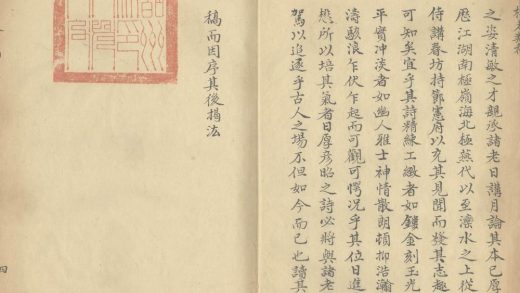 之姿清敏之才親承諸老日講月論其本已厚
歷江湖南極嶺海北極燕代以至灤水之上從
侍講春坊持節憲府以充其見聞而發其志趣
可知矣宜乎其詩精練工緻者如鏤金刻玉光
平實沖淡者如幽人雅士神情散朗頓抑浩瀚
濤駭浪乍伏乍起而可觀可愕况乎其位日進
懋所以培其氣者日厚彥昭之詩必將與諸老
駕以追逐乎古人之場不但如今而已也讀其
稿而因序其後揭法
四